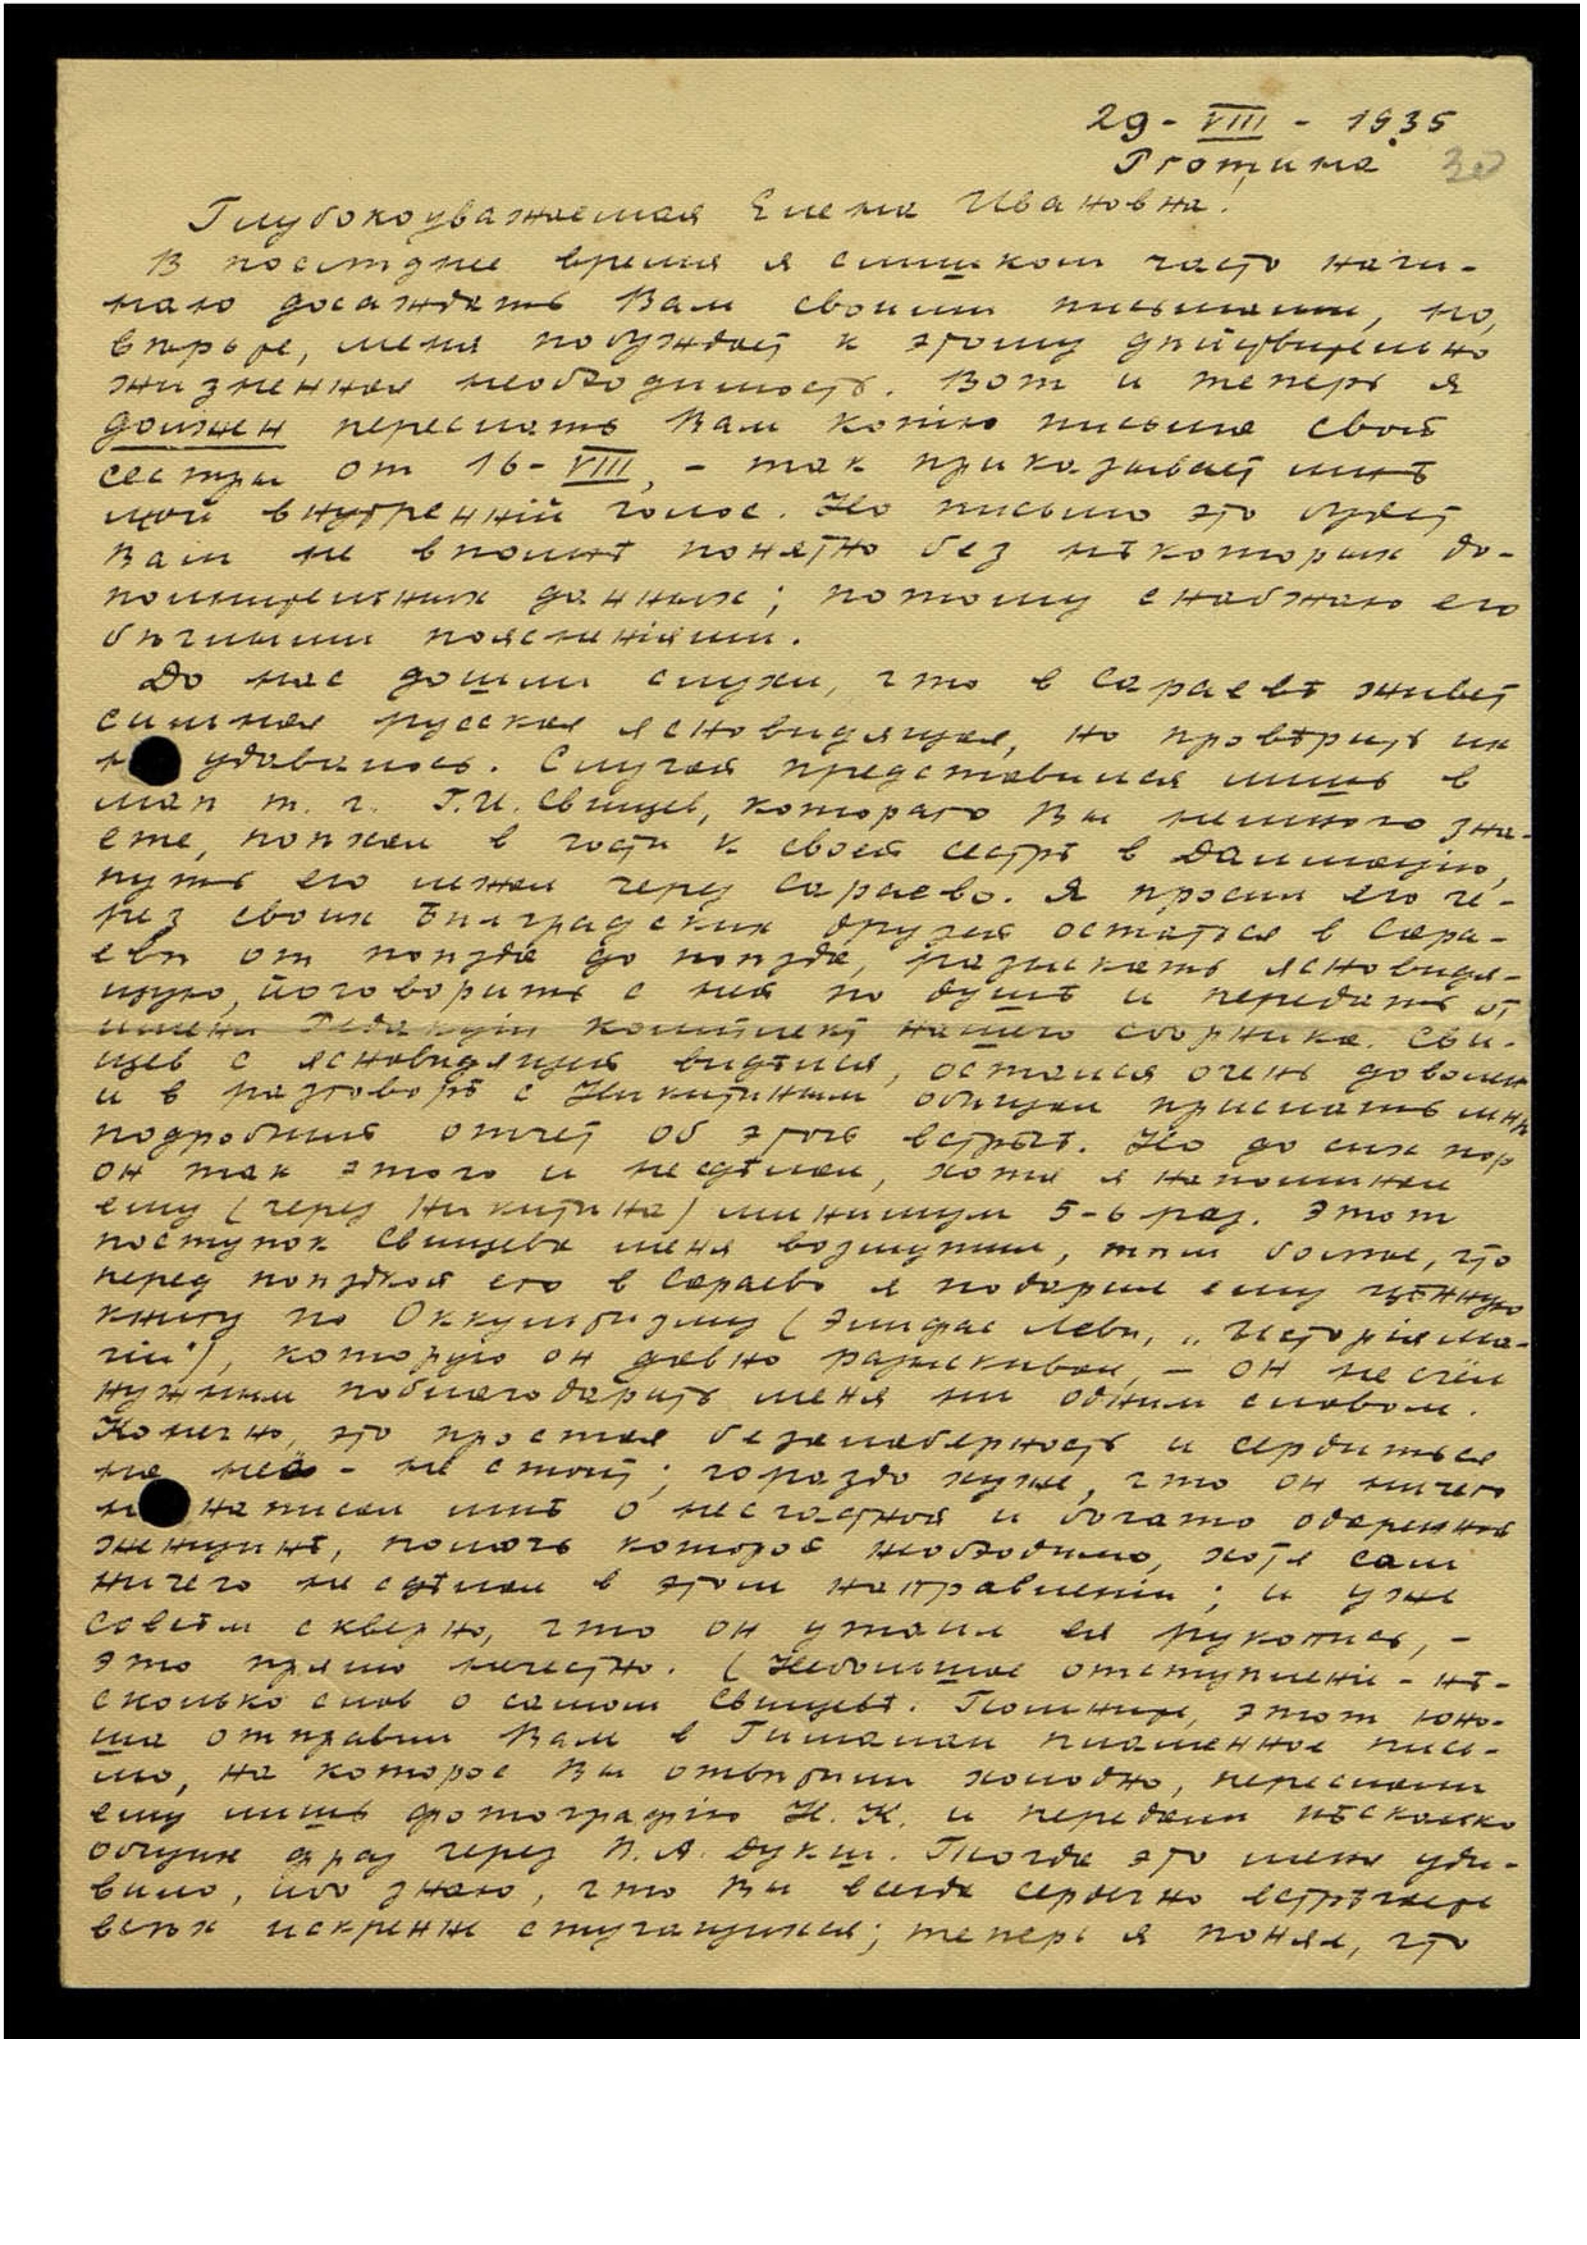 29 - VIII - 1935
Рготина
30
Глубокоуважаемая Елена Ивановна!
В последнее время я слишком часто начи-
наю досаждать Вам своими письмами, но,
вѣрьте, меня побуждает к этому дѣйствительно
жизненная необходимость. Вот и теперь я
должен переслать Вам копію письма своей
сестры от 16-VIII, - так приказывает мнѣ
мой внутренній голос. Но письмо это будет
Вам не вполнѣ понятно без нѣкоторых до-
полнительных данных; потому снабжаю его
бѣглыми поясненіями.
До нас дошли слухи, что в Сараевѣ живет
сильная русская ясновидящая, но провѣрить их
не удавалось. Случай представился лишь в
маѣ т. г. Г.И. Свищев, котораго Вы немного зна-
ете, поѣхал в гости к своей сестрѣ в Далмацію,
путь его лежал через Сараево. Я просил его че-
рез своих Бѣлградских друзей остаться в Сара-
евѣ от поѣзда до поѣзда, разыскать ясновидя-
щую, поговорить с ней по душѣ и передать от
имени Редакціи комплект нашего сборника. Сви-
щев с ясновидящей видѣлся, остался очень доволен
и в разговорѣ с Никитиным обѣщал прислать мнѣ
подробный отчет об этой встрѣчѣ. Но до сих пор
он так этого и не сдѣлал, хотя я напоминал
ему (через Никитина) минимум 5-6 раз. Этот
поступок Свищева меня возмутил, тѣм более, что
перед поѣздкой его в Сараево я подарил ему цѣнную
книгу по Оккультизму (Элифас Леви, „Исторія Ма-
гіи"), которую он давно разыскивал, - он не счел
нужным поблагодарить меня ни одним словом.
Конечно, это простая безалаберность и сердиться
на неё - не стоит; гораздо хуже, что он ничего
не написал мнѣ о несчастной и богато одаренной
женщинѣ, помочь которой необходимо, хотя сам
ничего не сдѣлал в этом направленіи; и уже
совсѣм скверно, что он утаил ея рукопись, -
это прямо нечестно. (Небольшое отступленіе - нѣ-
сколько слов о самом Свищевѣ. Помните, этот юно-
ша отправил Вам в Гималаи пламенное пись-
мо, на которое Вы отвѣтили холодно, переслали
ему лишь фотографію Н. К. и передали нѣсколько
общих фраз через В. А. Дукш. Тогда это меня уди-
вило, ибо знаю, что Вы всегда сердечно встрѣчаете
всѣх искренне стучащихся; теперь я понял, что